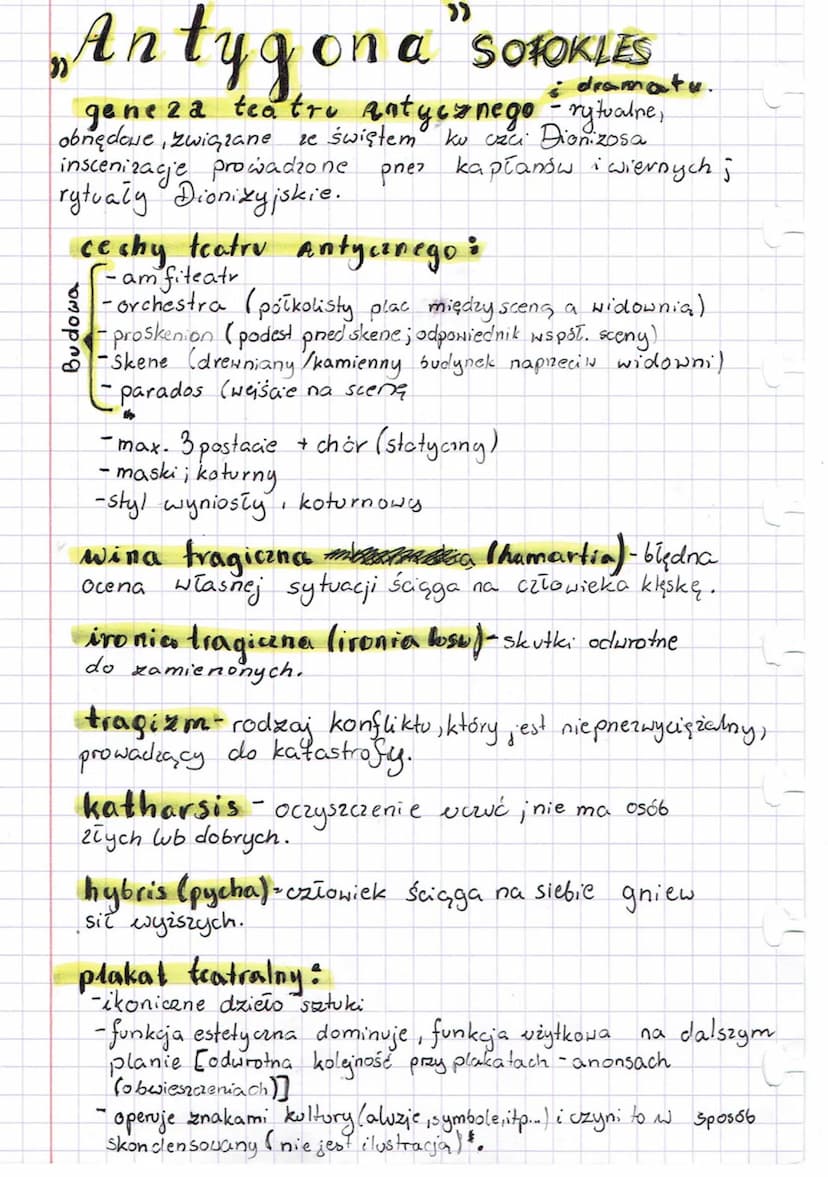 „Antygona” SOFOKLES
geneza teatru antycznego i dramatu. - rytualne,
obrzędowe, związane ze świętem ku czci Dionizosa
inscenizacje prowadzone przez kapłanów i wiernych;
rytuały Dionizyjskie.
cechy teatru antycznego:
Budowa
- amfiteatr
- orchestra (półkolisty plac między sceną a widownią)
- proskenion (podest przed skene; odpowiednik współ. sceny)
- skene (drewniany/kamienny budynek naprzeciw widowni)
- parados (wejście na scenę
- max. 3 postacie + chór (statyczny)
- maski; koturny
- styl wyniosły, koturnowy
wina tragiczna (hamartia) - błędna
ocena własnej sytuacji ściąga na człowieka klęskę.
ironia tragiczna (ironia losu) - skutki odwrotne
do zamienonych.
tragizm - rodzaj konfliktu, który jest nieprzezwyciężalny,
prowadzący do katastrofy.
katharsis - oczyszczenie uczuć; nie ma osób
złych lub dobrych.
hybris (pycha) - człowiek ściąga na siebie gniew
sił wyższych.
plakat teatralny:
- ikoniczne dzieło sztuki
- funkcja estetyczna dominuje, funkcja użytkowa na dalszym
planie [odwrotna kolejność przy plakatach - anonsach
(obwieszczeniach)]
- operuje znakami kultury (aluzje, symbole, itp...) i czyni to w sposób
skondensowany (nie jest ilustracją)*.